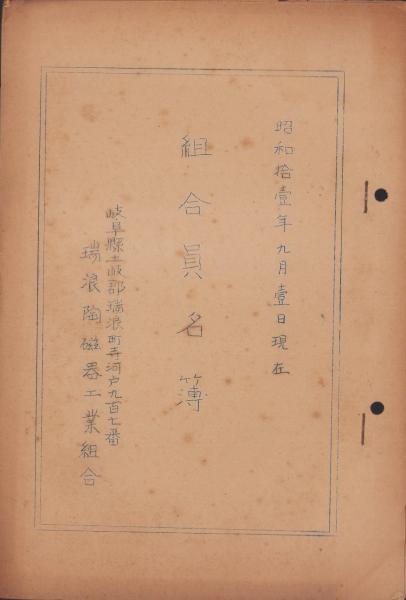 昭和拾壹年九月壹日現在
組合員名簿
岐阜縣土岐郡瑞浪町寺河戸九百七番
瑞浪陶磁器工業組合